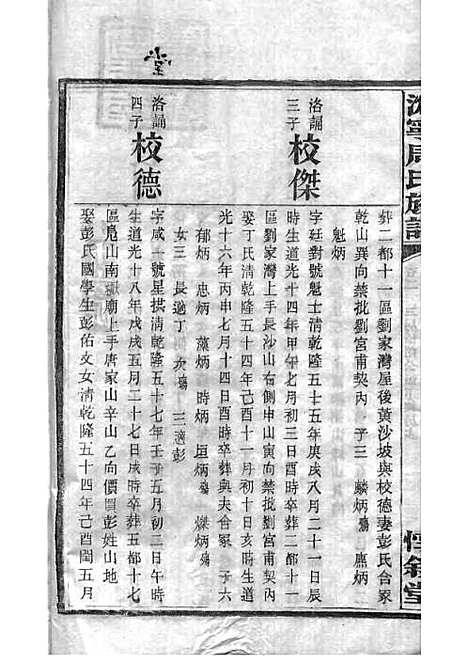 葬二都十一區劉家灣屋後黃沙坡與校德妻彭氏合冢
乾山巽向禁批劉宮甫契內 子三 麟炳殤 鷹炳
魁炳
洛誦三子 校傑
字廷對號魁士清乾隆五十五年庚戌八月二十一日辰
時生道光十四年甲午七月初三日酉時卒葬二都十一
區劉家灣上手長沙山右側申山寅向禁批劉宮甫契內
娶丁氏清乾隆五十四年己酉十一月初十日寅時生道
光十六年丙申七月十四日酉時卒葬與夫合冢 子六
郁炳 忠炳 藻炳 時炳 垣炳殤 燦炳殤
女三 長適丁 次殤 三適彭
洛誦四子 校德
字咸一號星拱清乾隆五十七年壬子五月初二日午時
生道光十八年戊戌五月二十七日戌時卒葬五都十七
區鳧山南嶽廟上手唐家山辛山乙向價買彭姓山地
娶彭氏國學生彭佑文女清乾隆五十四年己酉閏五月
寧周氏族譜
惇敘堂
堂